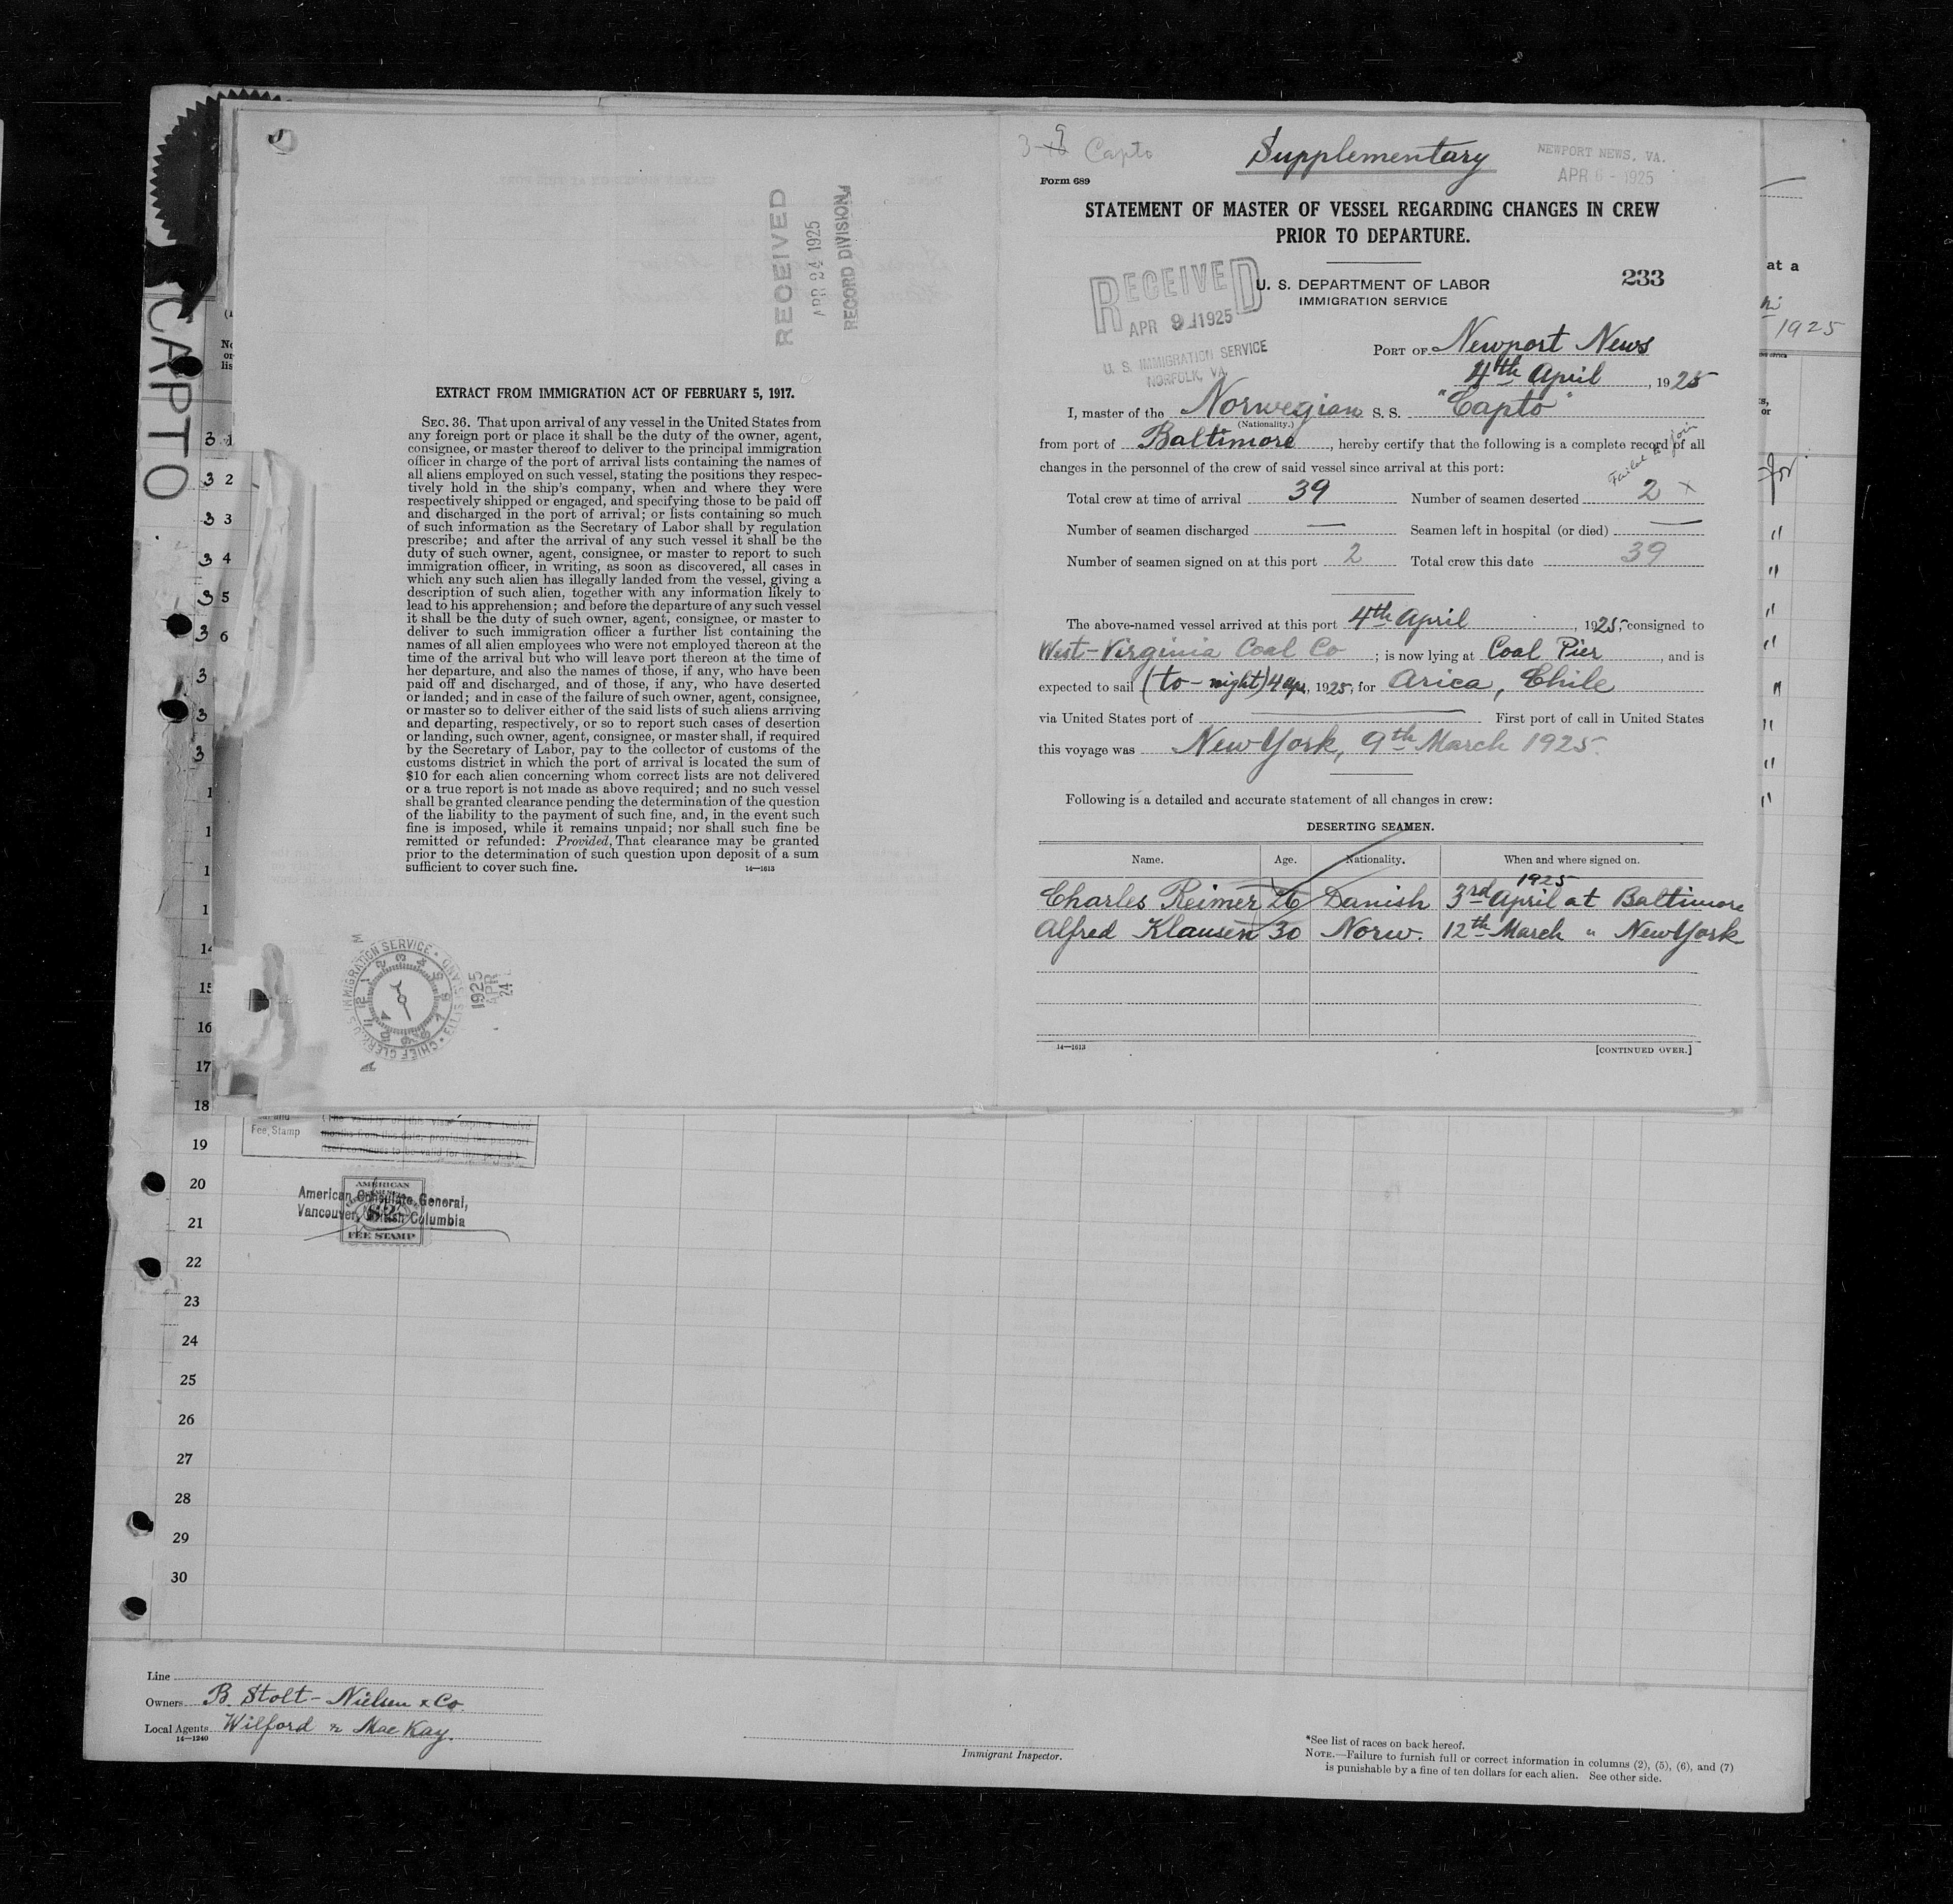 CAPTO
RECEIVED
APR 24 1925
RECORD DIVISION
EXTRACT FROM IMMIGRATION ACT OF FEBRUARY 5, 1917.
SEC. 36. That upon arrival of any vessel in the United States from
any foreign port or place it shall be the duty of the owner, agent,
consignee, or master thereof to deliver to the principal immigration
officer in charge of the port of arrival lists containing the names of
all aliens employed on such vessel, stating the positions they respec-
tively hold in the ship's company, when and where they were
respectively shipped or engaged, and specifying those to be paid off
and discharged in the port of arrival; or lists containing so much
of such information as the Secretary of Labor shall by regulation
prescribe; and after the arrival of any such vessel it shall be the
duty of such owner, agent, consignee, or master to report to such
immigration officer, in writing, as soon as discovered, all cases in
which any such alien has illegally landed from the vessel, giving a
description of such alien, together with any information likely to
lead to his apprehension; and before the departure of any such vessel
it shall be the duty of such owner, agent, consignee, or master to
deliver to such immigration officer a further list containing the
names of all alien employees who were not employed thereon at the
time of the arrival but who will leave port thereon at the time of
her departure, and also the names of those, if any, who have been
paid off and discharged, and of those, if any, who have deserted
or landed; and in case of the failure of such owner, agent, consignee,
or master so to deliver either of the said lists of such aliens arriving
and departing, respectively, or so to report such cases of desertion
or landing, such owner, agent, consignee, or master shall, if required
by the Secretary of Labor, pay to the collector of customs of the
customs district in which the port of arrival is located the sum of
$10 for each alien concerning whom correct lists are not delivered
or a true report is not made as above required; and no such vessel
shall be granted clearance pending the determination of the question
of the liability to the payment of such fine, and, in the event such
fine is imposed, while it remains unpaid; nor shall such fine be
remitted or refunded: Provided, That clearance may be granted
prior to the determination of such question upon deposit of a sum
sufficient to cover such fine. 14—1613
U. S. IMMIGRATION SERVICE • ELLIS ISLAND • CHIEF CLERK
1925 APR 24
Capto
Supplementary
NEWPORT NEWS, VA.
APR 6 - 1925
Form 689
STATEMENT OF MASTER OF VESSEL REGARDING CHANGES IN CREW
PRIOR TO DEPARTURE.
RECEIVED
APR 9 1925
U. S. IMMIGRATION SERVICE
NORFOLK, VA.
U. S. DEPARTMENT OF LABOR
IMMIGRATION SERVICE
233
PORT OF Newport News
4th April, 1925
I, master of the Norwegian S. S. "Capto"
(Nationality.)
from port of Baltimore, hereby certify that the following is a complete record of all
changes in the personnel of the crew of said vessel since arrival at this port:
Failed to join
Total crew at time of arrival 39 Number of seamen deserted 2 x
Number of seamen discharged — Seamen left in hospital (or died) —
Number of seamen signed on at this port 2 Total crew this date 39
The above-named vessel arrived at this port 4th April, 1925, consigned to
West-Virginia Coal Co; is now lying at Coal Pier, and is
expected to sail (to-night) 4 Apr, 1925, for Arica, Chile
via United States port of — First port of call in United States
this voyage was New York, 9th March 1925.
Following is a detailed and accurate statement of all changes in crew:
DESERTING SEAMEN.
Name. Age. Nationality. When and where signed on.
1925
Charles Reimer 26 Danish 3rd April at Baltimore
Alfred Klausen 30 Norw. 12th March " New York
14—1613
[CONTINUED OVER.]
at a
1925
3 2
3 3
3 4
3 5
3 6
3
3
3
14
15
16
17
18
19
20
21
22
23
24
25
26
27
28
29
30
Fee Stamp
(The validity of this visa expires twelve
months from this date, provided the passport
itself continues to be valid for that period.)
AMERICAN
FEE STAMP
American Consulate General,
Vancouver, British Columbia
Line
Owners B. Stolt-Nielsen & Co.
Local Agents Wilford & MacKay.
14—1240
Immigrant Inspector.
*See list of races on back hereof.
NOTE.—Failure to furnish full or correct information in columns (2), (5), (6), and (7)
is punishable by a fine of ten dollars for each alien. See other side.